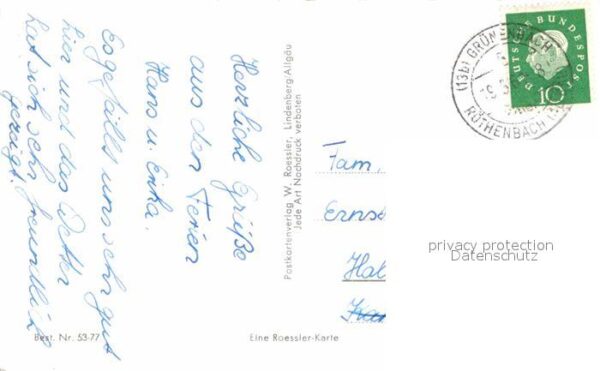 Herzliche Grüße
aus den Ferien
Hans u. Erika.
Es gefällt uns sehr gut
hier und das Wetter
hat sich sehr freundlich
gezeigt.
Best. Nr. 53-77
Eine Roessler-Karte
Postkartenverlag W. Roessler, Lindenberg-Allgäu
Jede Art Nachdruck verboten
Fam.
Erns
Hal
privacy protection
Datenschutz
(13b) GRÜNENBACH
RÖTHENBACH
DEUTSCHE BUNDESPOST
10